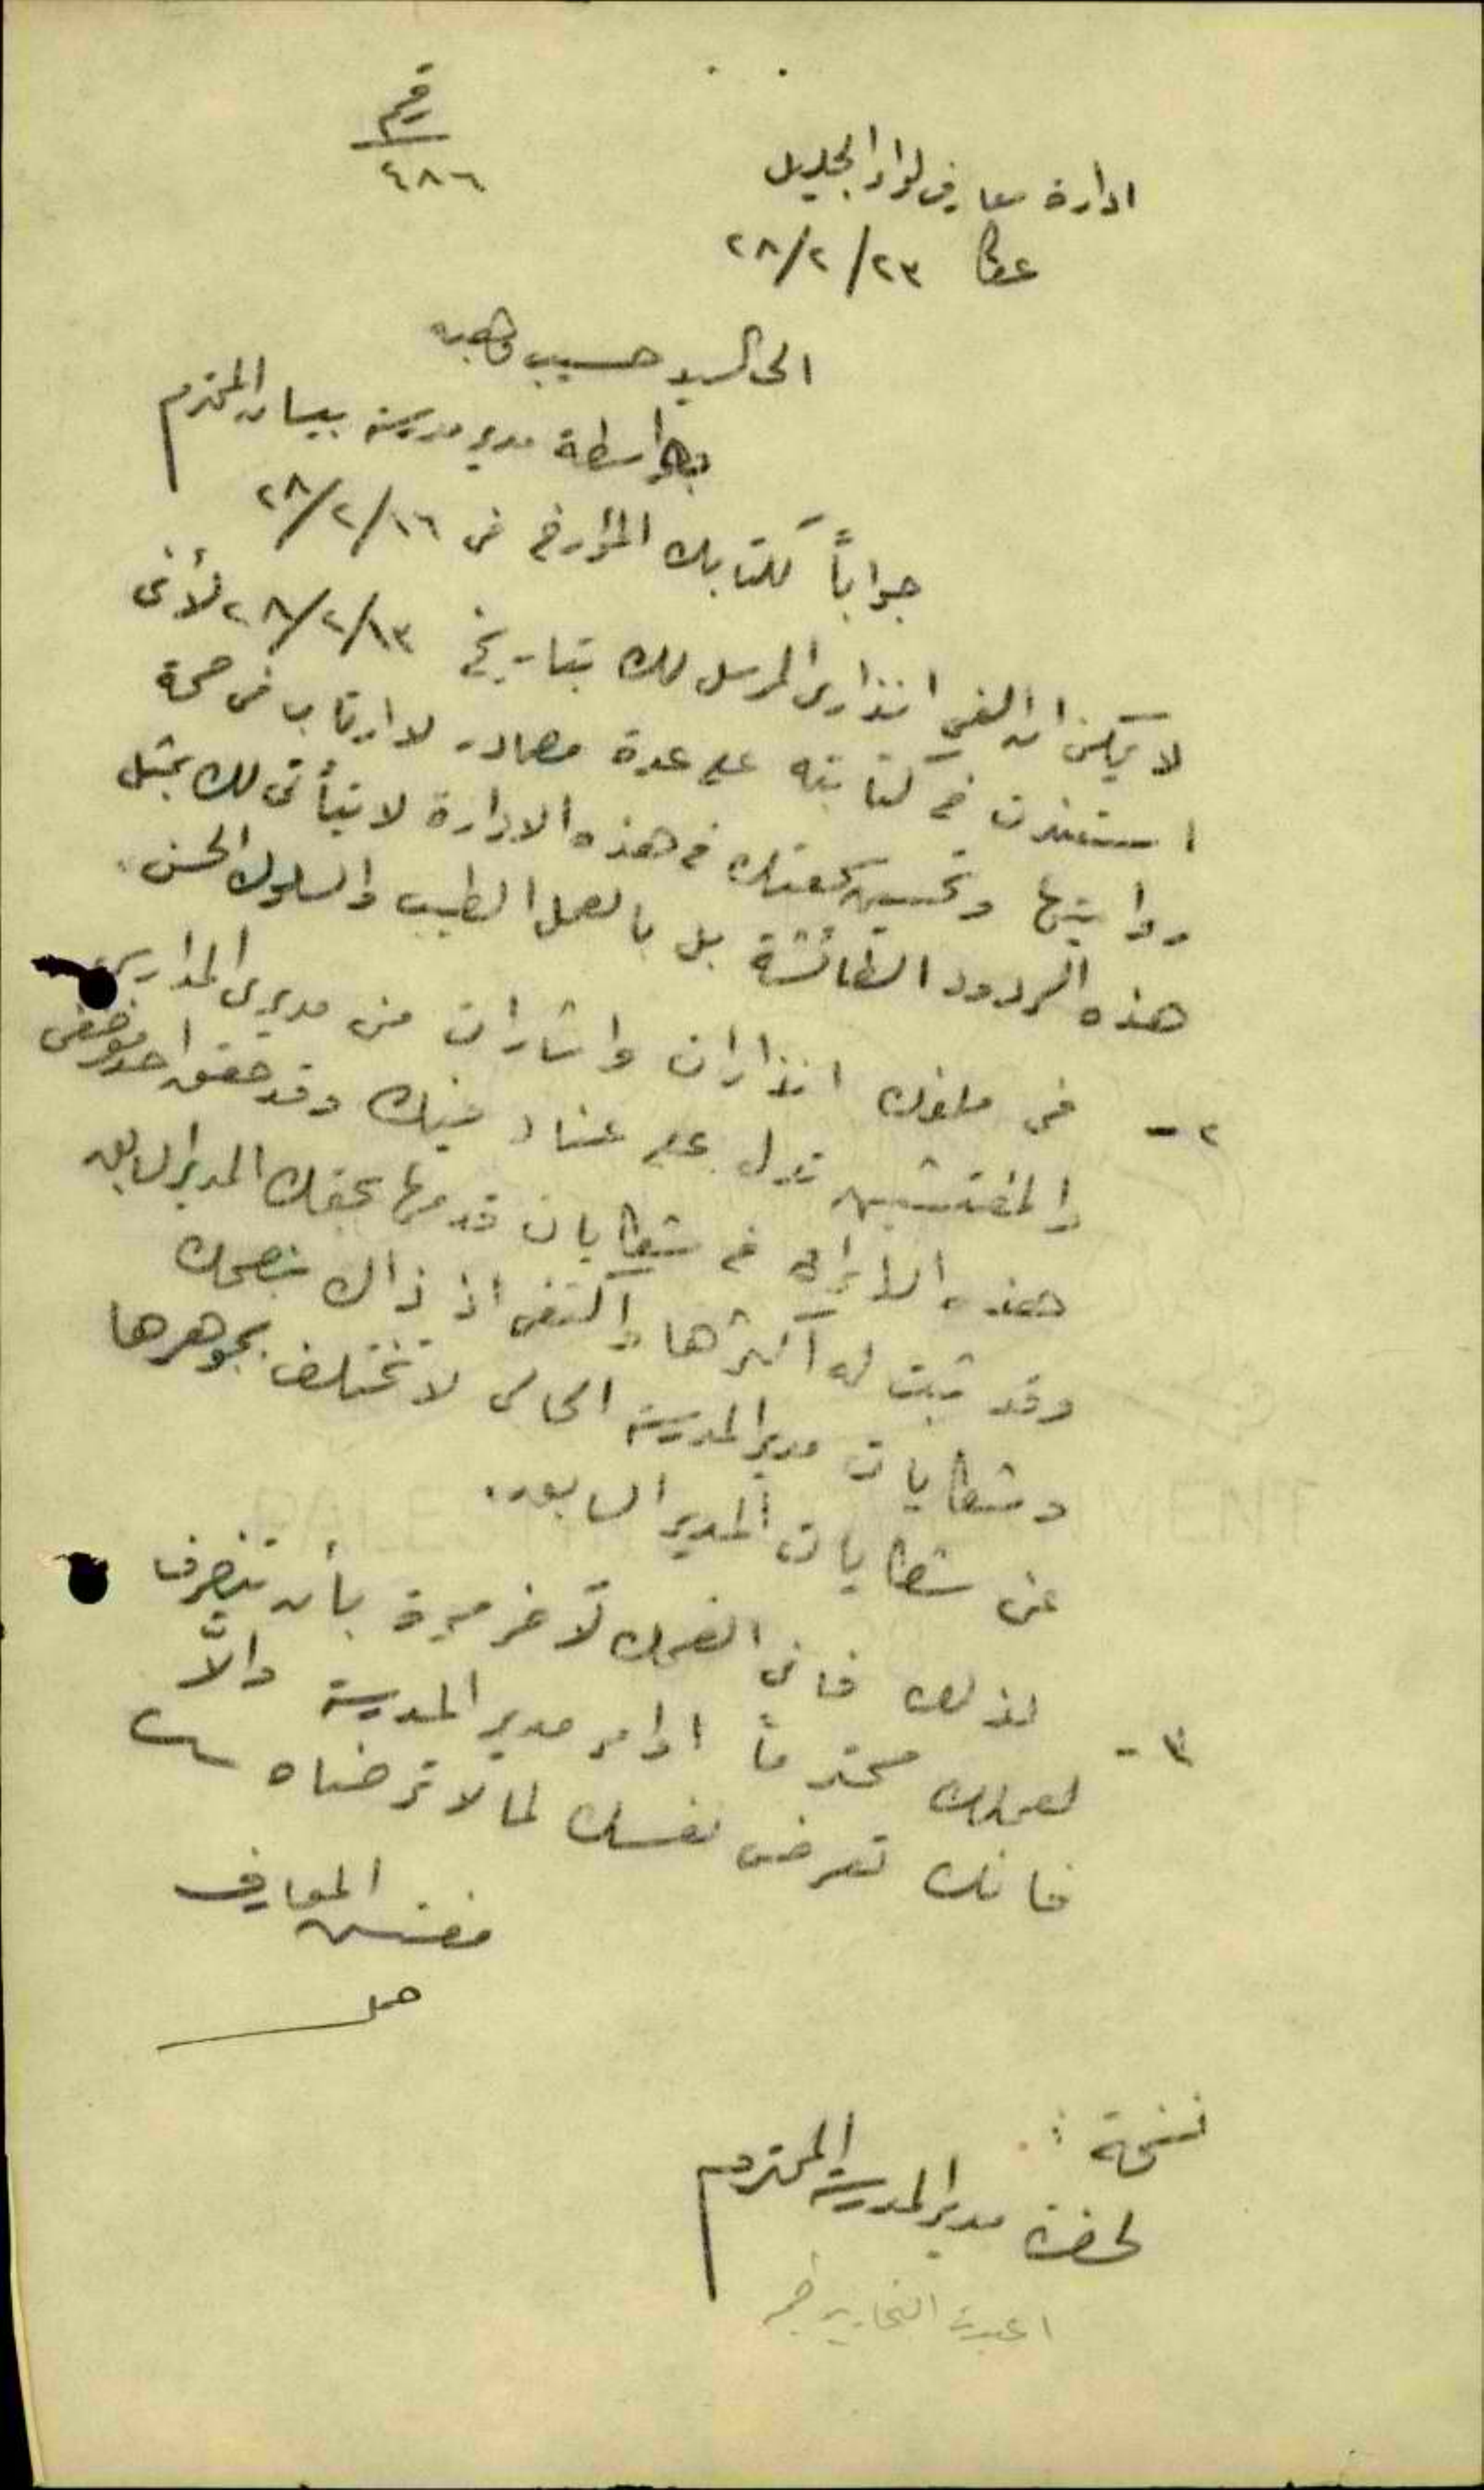 رقم
٤٨٦
ادارة معارف لواء الجليل
عكا ٢٣/٢/٢٨
الى السيد حسيب وهبه
بواسطة مدير مدرسة بيسان المحترم
جواباً لكتابك المؤرخ في ١٦/٢/٢٨
لا يمكن ان الغي انذاري المرسل لك بتاريخ ١٣/٢/٢٨ لأني
استندت في كتابته على عدة مصادر لا ارتاب في صحة
روايتها وتحسين سمعتك في هذه الادارة لا يتأتى لك بمثل
هذه الردود الطائشة بل بالعمل الطيب والسلوك الحسن.
٢- في ملفك انذارات واشارات من مديري المدارس
والمفتشين تدل على عناد فيك وقد حقق احد موظفي
هذه الادارة في شكايات قدمها بحقك المدير السابق
وقد ثبت له اكثرها واكتفى اذ ذاك بنصحك
وشكايات مدير المدرسة الحالي لا تختلف بجوهرها
عن شكايات المدير السابق.
٣- لذلك فاني انصحك لآخر مرة بأن تنصرف
لعملك محترماً اوامر مدير المدرسة والاَّ
فانك تعرض نفسك لما لا ترضاه
مفتش المعارف
نسخة:
لحضرة مدير المدرسة المحترم
اعيدت التحارير